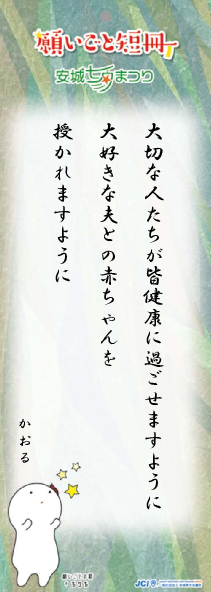 願いごと短冊
安城七夕まつり
大切な人たちが皆健康に過ごせますように
大好きな夫との赤ちゃんを
授かれますように
かおる
JCI